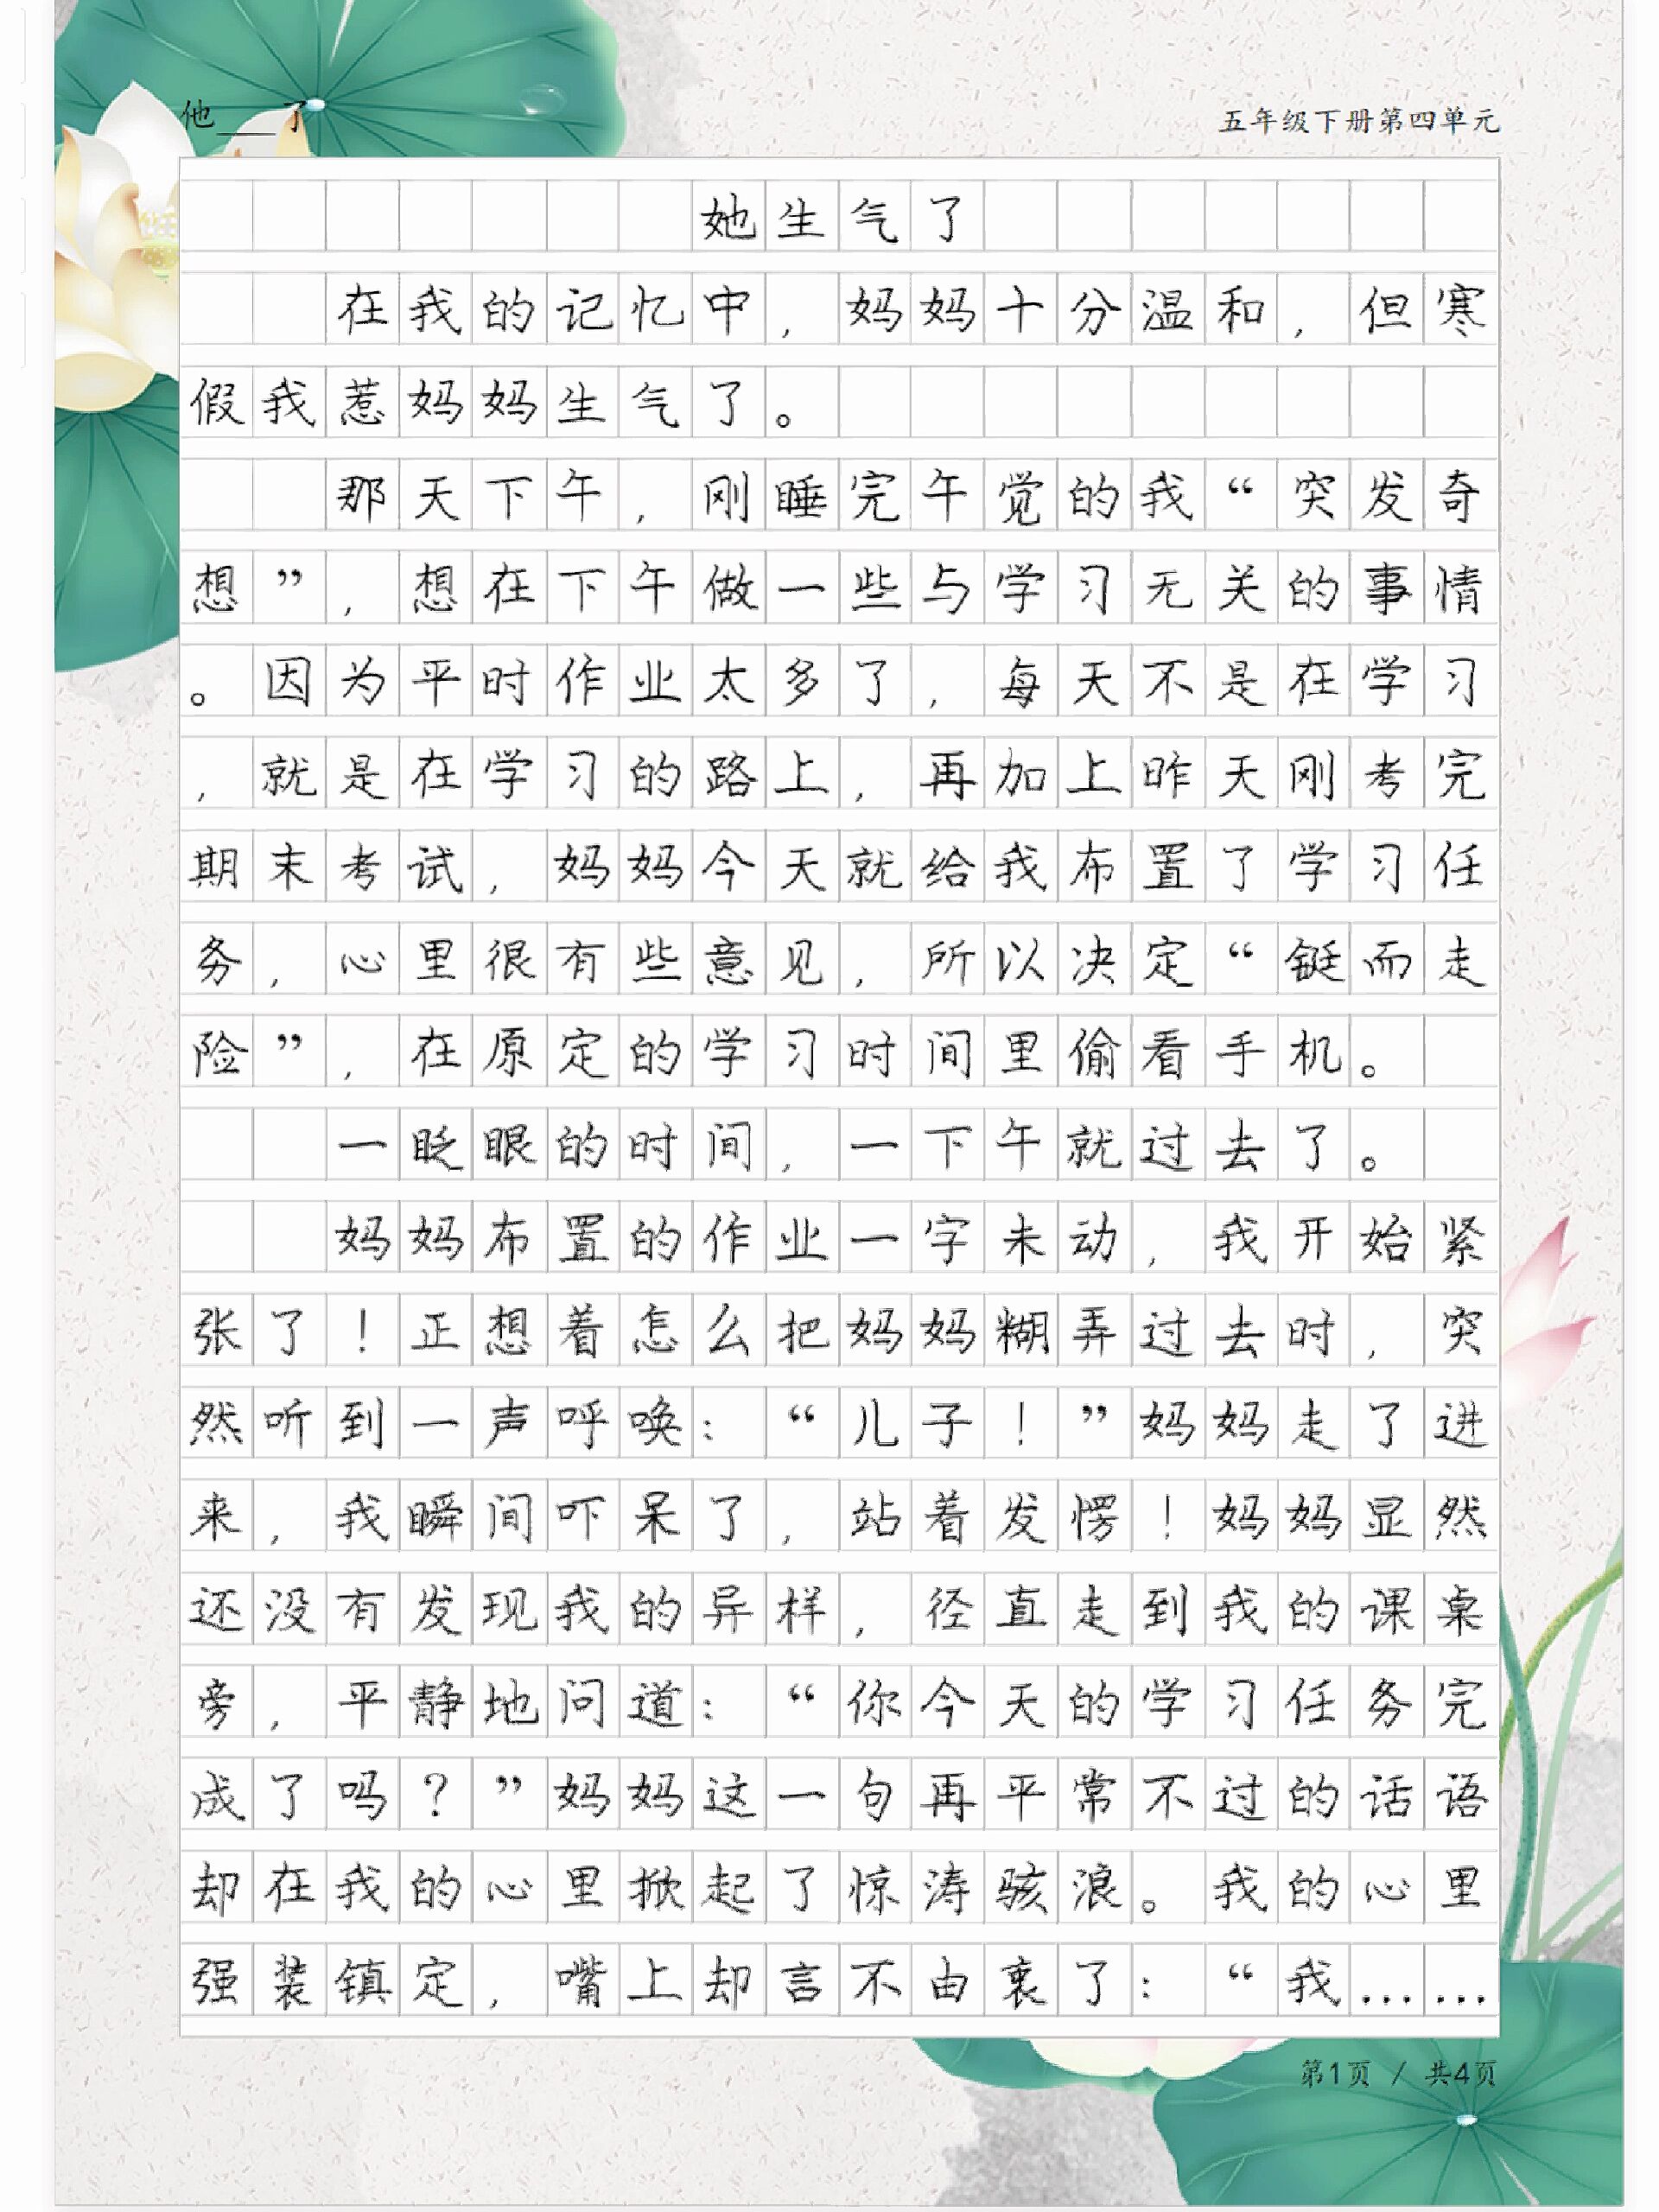 他___了
五年级下册第四单元
她生气了
在我的记忆中，妈妈十分温和，但寒
假我惹妈妈生气了。
那天下午，刚睡完午觉的我“突发奇
想”，想在下午做一些与学习无关的事情
。因为平时作业太多了，每天不是在学习
，就是在学习的路上，再加上昨天刚考完
期末考试，妈妈今天就给我布置了学习任
务，心里很有些意见，所以决定“铤而走
险”，在原定的学习时间里偷看手机。
一眨眼的时间，一下午就过去了。
妈妈布置的作业一字未动，我开始紧
张了！正想着怎么把妈妈糊弄过去时，突
然听到一声呼唤：“儿子！”妈妈走了进
来，我瞬间吓呆了，站着发愣！妈妈显然
还没有发现我的异样，径直走到我的课桌
旁，平静地问道：“你今天的学习任务完
成了吗？”妈妈这一句再平常不过的话语
却在我的心里掀起了惊涛骇浪。我的心里
强装镇定，嘴上却言不由衷了：“我……
第1页 / 共4页